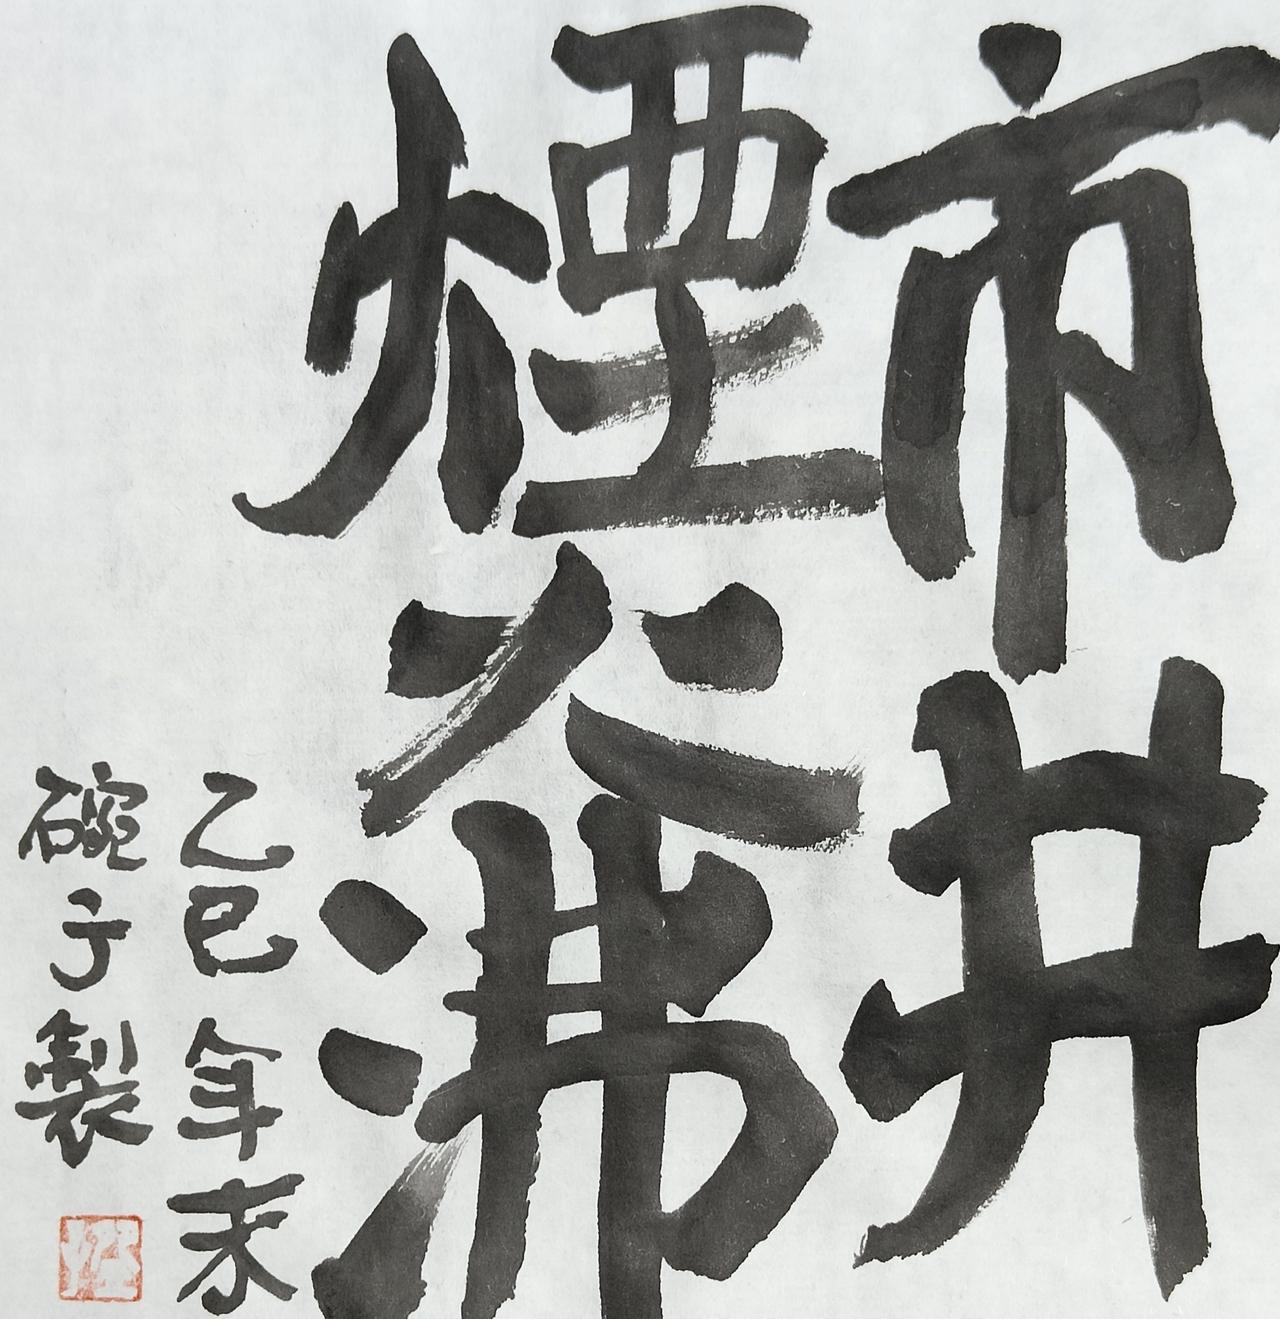 市井
煙火沸
乙巳年末
碗子製